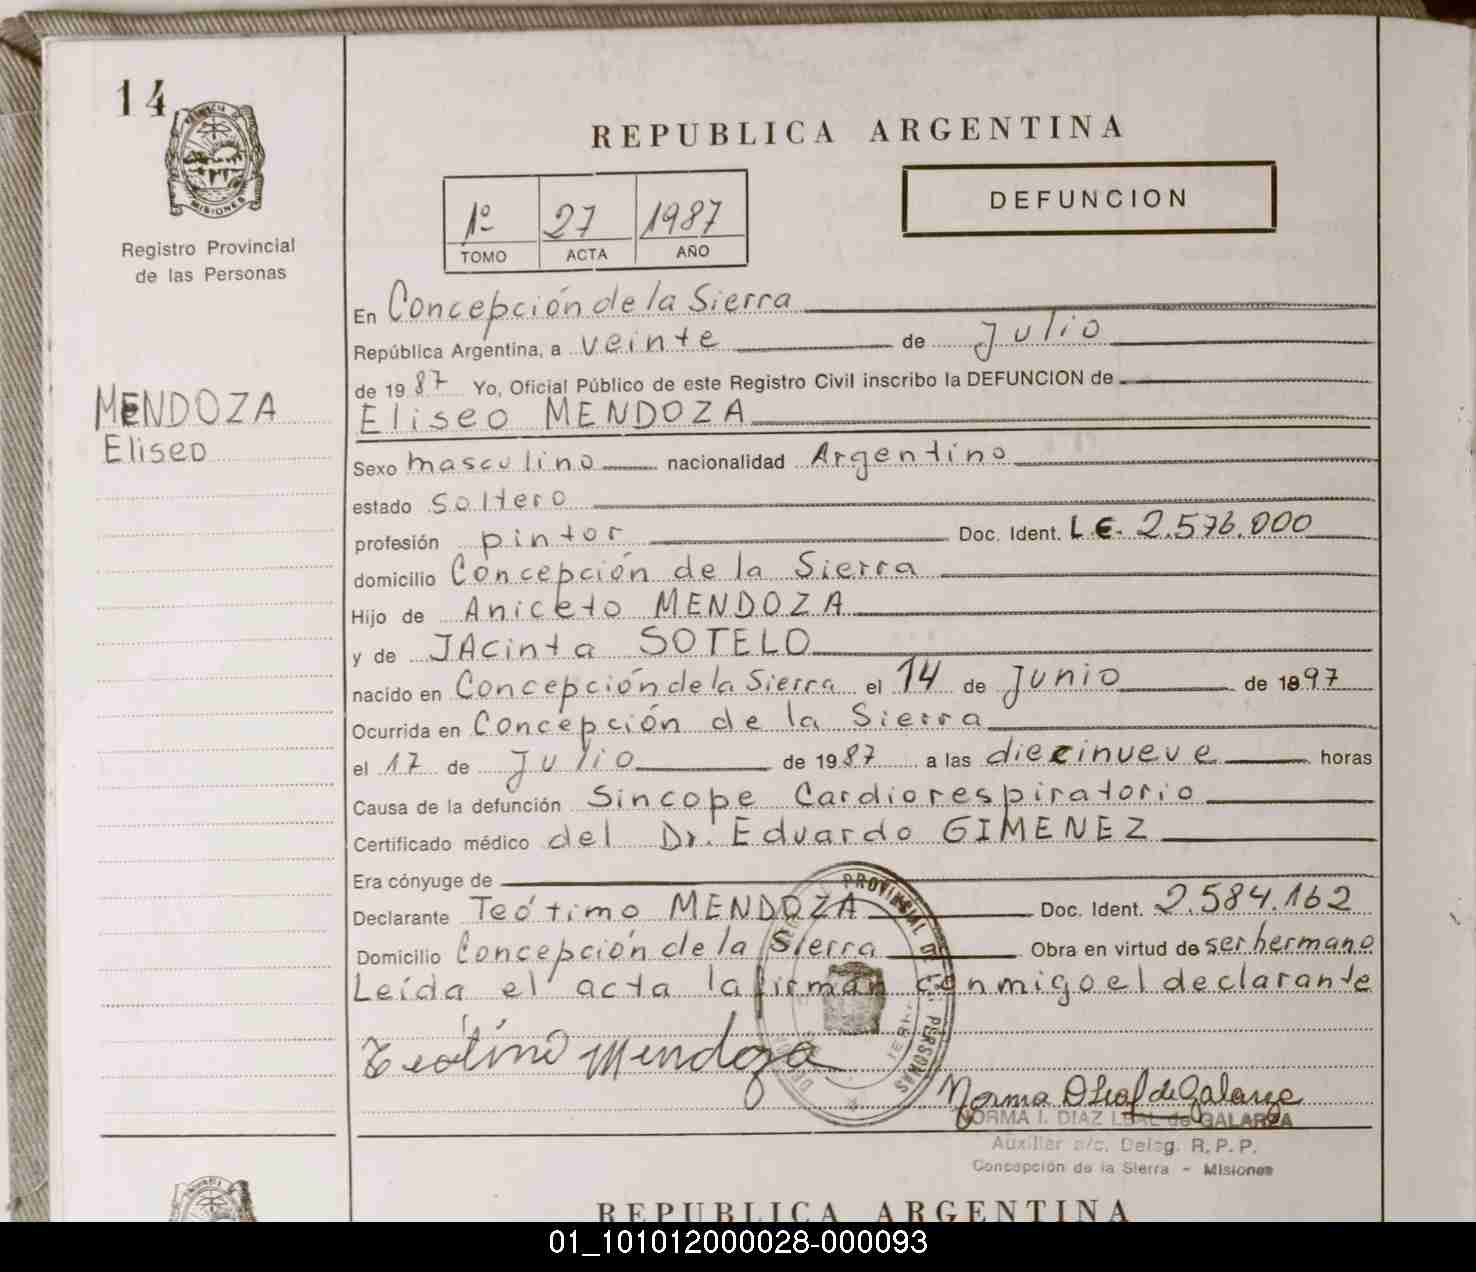 14
MISIONES
Registro Provincial
de las Personas
MENDOZA
Eliseo
REPUBLICA ARGENTINA
1º 27 1987
TOMO ACTA AÑO
DEFUNCION
En Concepción de la Sierra
República Argentina, a veinte de Julio
de 1987 Yo, Oficial Público de este Registro Civil inscribo la DEFUNCION de
Eliseo MENDOZA
Sexo masculino nacionalidad Argentino
estado soltero
profesión pintor Doc. Ident. L.E. 2.576.000
domicilio Concepción de la Sierra
Hijo de Aniceto MENDOZA
y de JAcinta SOTELO
nacido en Concepción de la Sierra el 14 de Junio de 1897
Ocurrida en Concepción de la Sierra
el 17 de Julio de 1987 a las diecinueve horas
Causa de la defunción Sincope Cardiorespiratorio
Certificado médico del Dr. Eduardo GIMENEZ
Era cónyuge de
Declarante Teótimo MENDOZA Doc. Ident. 2.584.162
Domicilio Concepción de la Sierra Obra en virtud de ser hermano
Leída el acta la firman conmigo el declarante
PROVINCIAL DE PERSONAS
Teótimo Mendoza
Norma de Galarza
NORMA I. DIAZ LEAL de GALARZA
Auxiliar a/c. Deleg. R. P. P.
Concepción de la Sierra - Misiones
REPUBLICA ARGENTINA
01_101012000028-000093